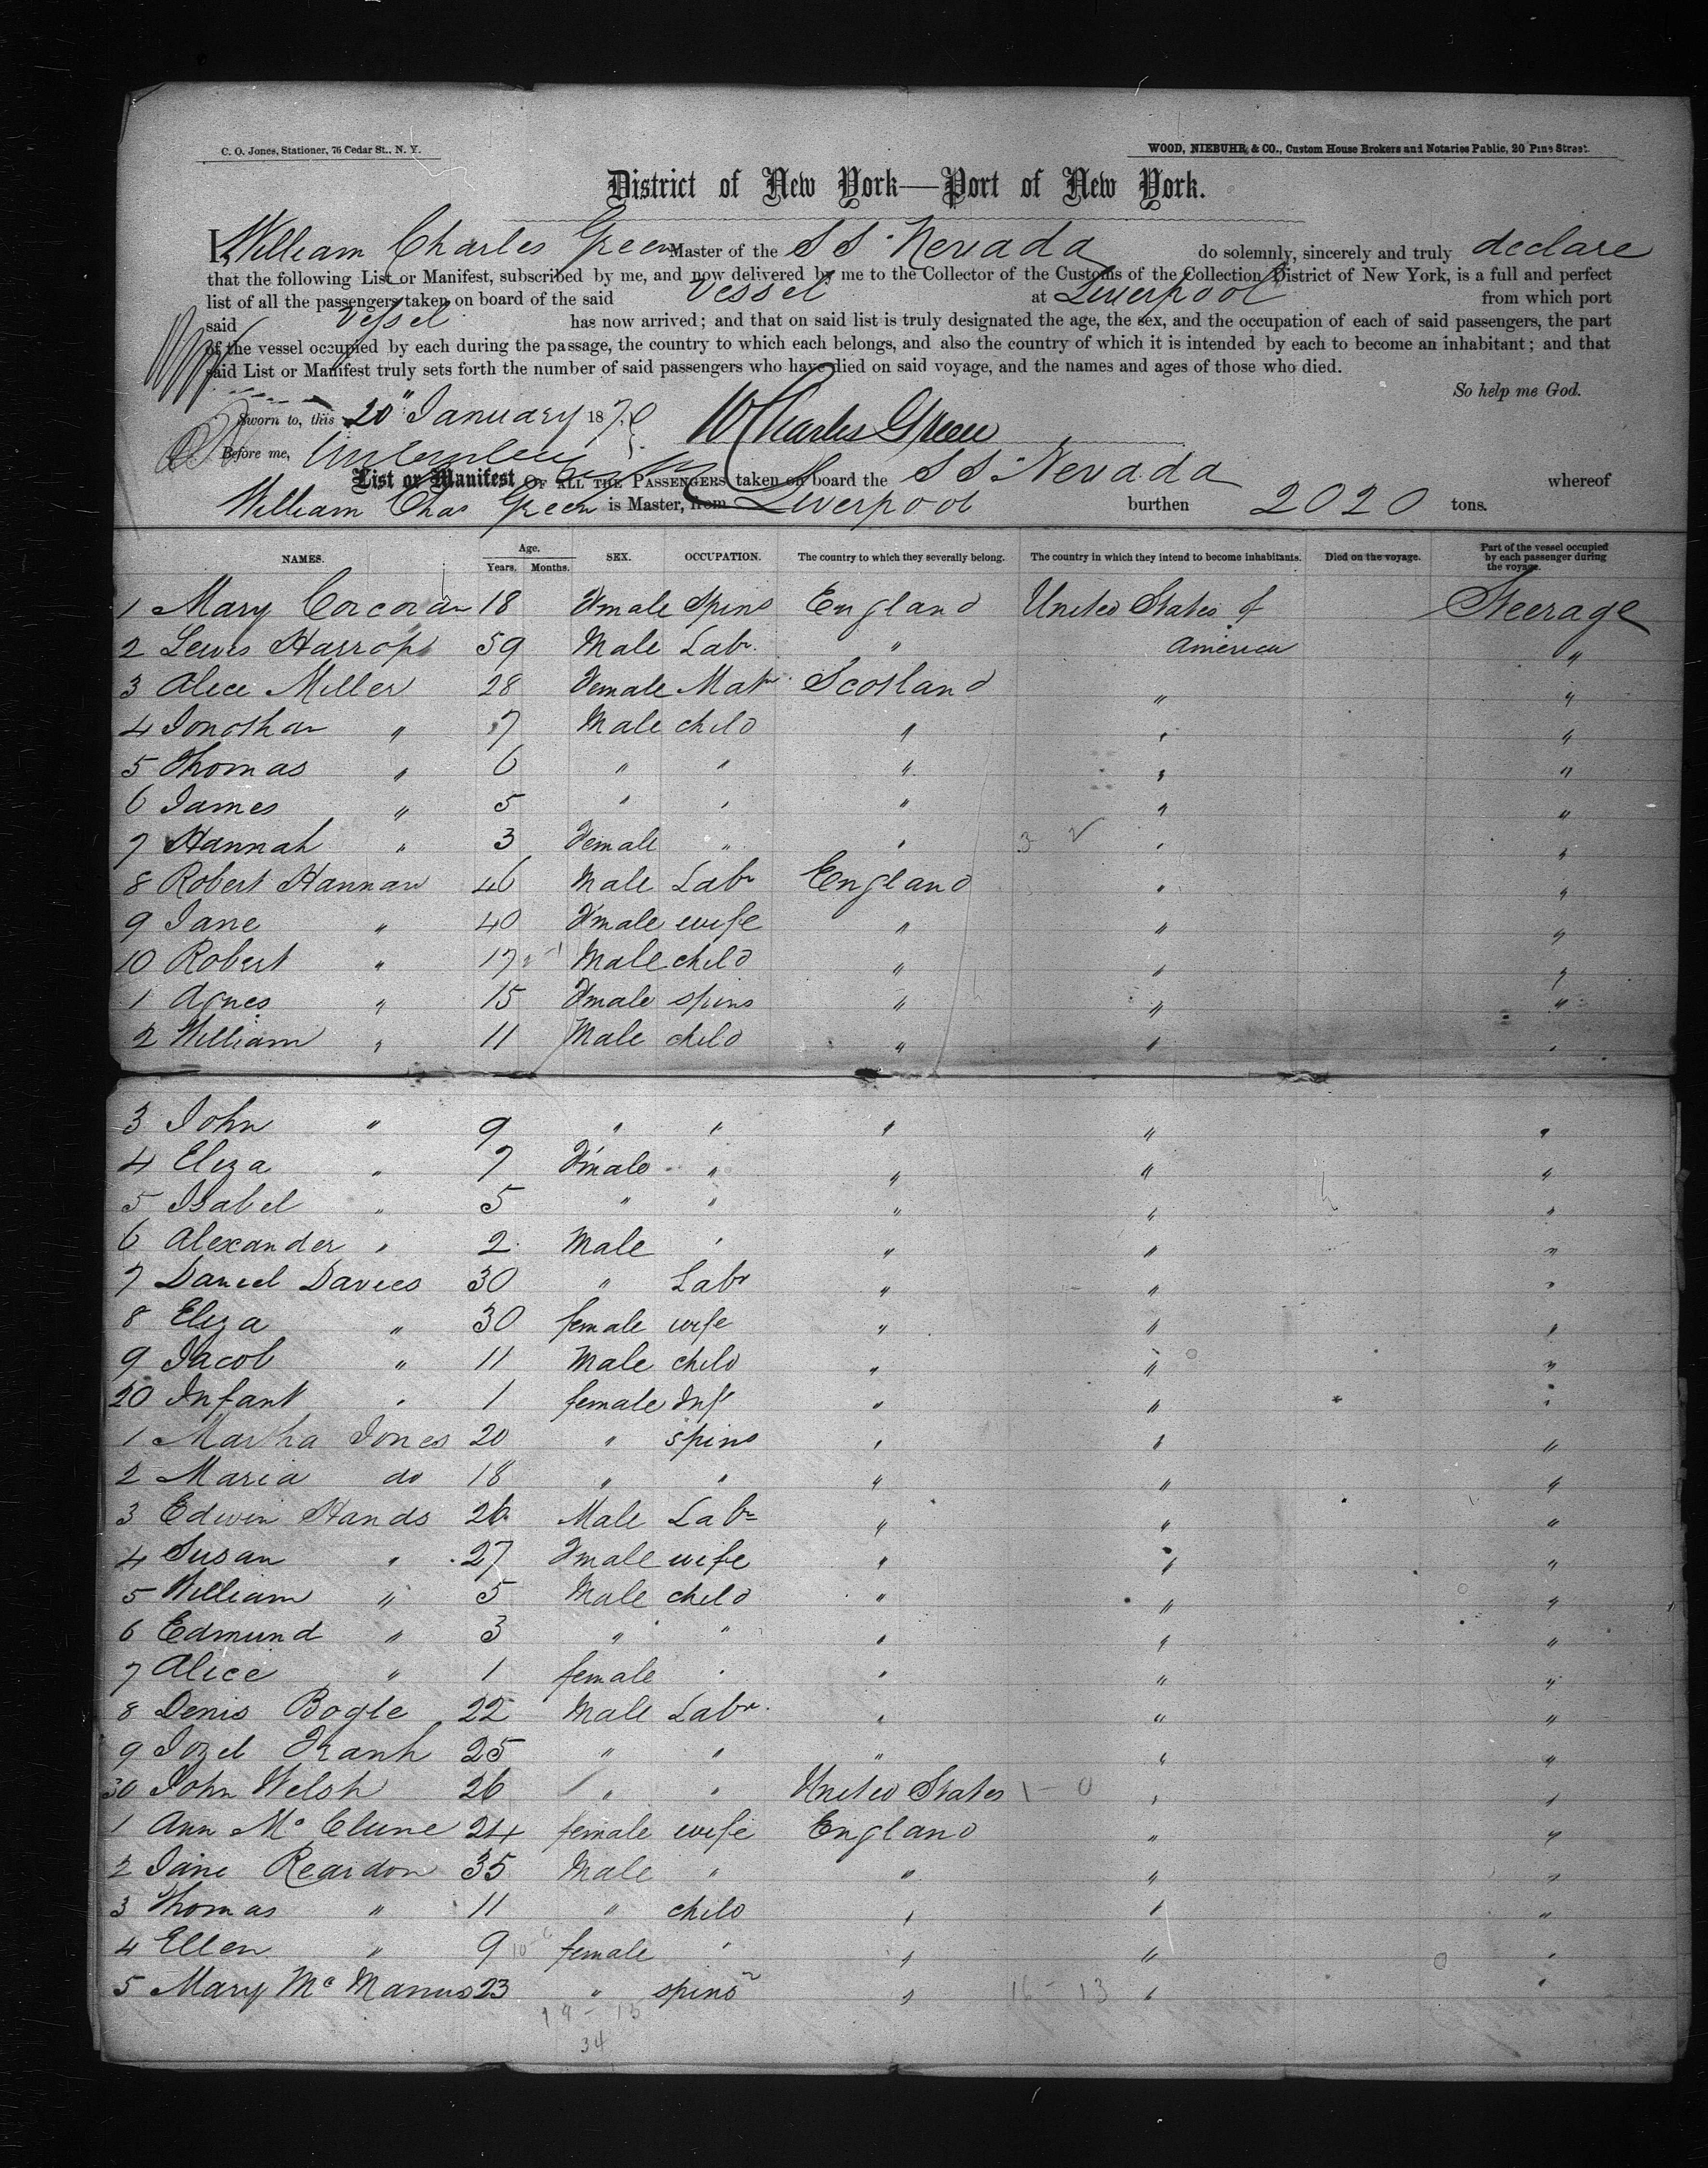 C. O. Jones, Stationer, 76 Cedar St., N. Y.
WOOD, NIEBUHR & CO., Custom House Brokers and Notaries Public, 20 Pine Street.
District of New York—Port of New York.
I, William Charles Green Master of the SS Nevada do solemnly, sincerely and truly declare
that the following List or Manifest, subscribed by me, and now delivered by me to the Collector of the Customs of the Collection District of New York, is a full and perfect
list of all the passengers taken on board of the said Vessel at Liverpool from which port
said Vessel has now arrived; and that on said list is truly designated the age, the sex, and the occupation of each of said passengers, the part
of the vessel occupied by each during the passage, the country to which each belongs, and also the country of which it is intended by each to become an inhabitant; and that
said List or Manifest truly sets forth the number of said passengers who have died on said voyage, and the names and ages of those who died.
So help me God.
Sworn to, this 20" January 1870
W Charles Green
Before me,
List or Manifest OF ALL THE PASSENGERS taken on board the SS Nevada whereof
William Chas Green is Master, from Liverpool burthen 2020 tons.
NAMES. Age. Years. Months. SEX. OCCUPATION. The country to which they severally belong. The country in which they intend to become inhabitants. Died on the voyage. Part of the vessel occupied by each passenger during the voyage.
1 Mary Corcoran 18 Fmale Spins England United States of Steerage
2 Lewis Harrop 59 Male Labr. " America "
3 Alice Miller 28 Female Matr Scotland " "
4 Jonothan " 7 Male child " " "
5 Thomas " 6 " " " " "
6 James " 5 " " " " "
7 Hannah " 3 Female " " 3 2 " "
8 Robert Hannan 46 Male Labr England " "
9 Jane " 40 Fmale wife " " "
10 Robert " 17 Male child " " "
1 Agnes " 15 Fmale spins " " "
2 William " 11 Male child " " "
3 John " 9 " " " " "
4 Eliza " 7 Fmale " " " "
5 Isabel " 5 " " " " "
6 Alexander " 2 Male " " " "
7 Daniel Davies 30 " Labr " " "
8 Eliza " 30 female wife " " "
9 Jacob " 11 Male child " " "
20 Infant " 1 female Inft " " "
1 Martha Jones 20 " spins " " "
2 Maria do 18 " " " " "
3 Edwin Hands 26 Male Labr " " "
4 Susan " 27 Fmale wife " " "
5 William " 5 Male child " " "
6 Edmund " 3 " " " " "
7 Alice " 1 female " " " "
8 Denis Bogle 22 Male Labr. " " "
9 Jozel Frank 25 " " " " "
30 John Welsh 26 " " United States 1 - 0 " "
1 Ann Mc Clune 24 female wife England " "
2 Jane Reardon 35 Male " " " "
3 Thomas " 11 " child " " "
4 Ellen " 9 10-6 female " " " "
5 Mary Mc Manus 23 " spins " 16 - 13 " "
19 - 15
34